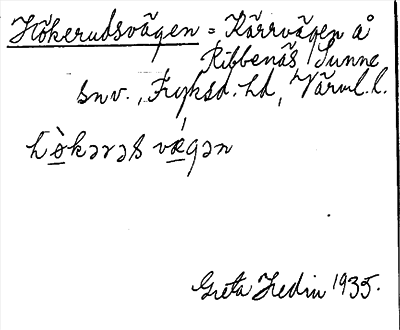 Hökerudsvägen = Kärrvägen å
Ribbenäs Sunne
snv., Fryksd. hd, Värml. l.
hø̀kərəs vægən
Greta Hedin 1935.